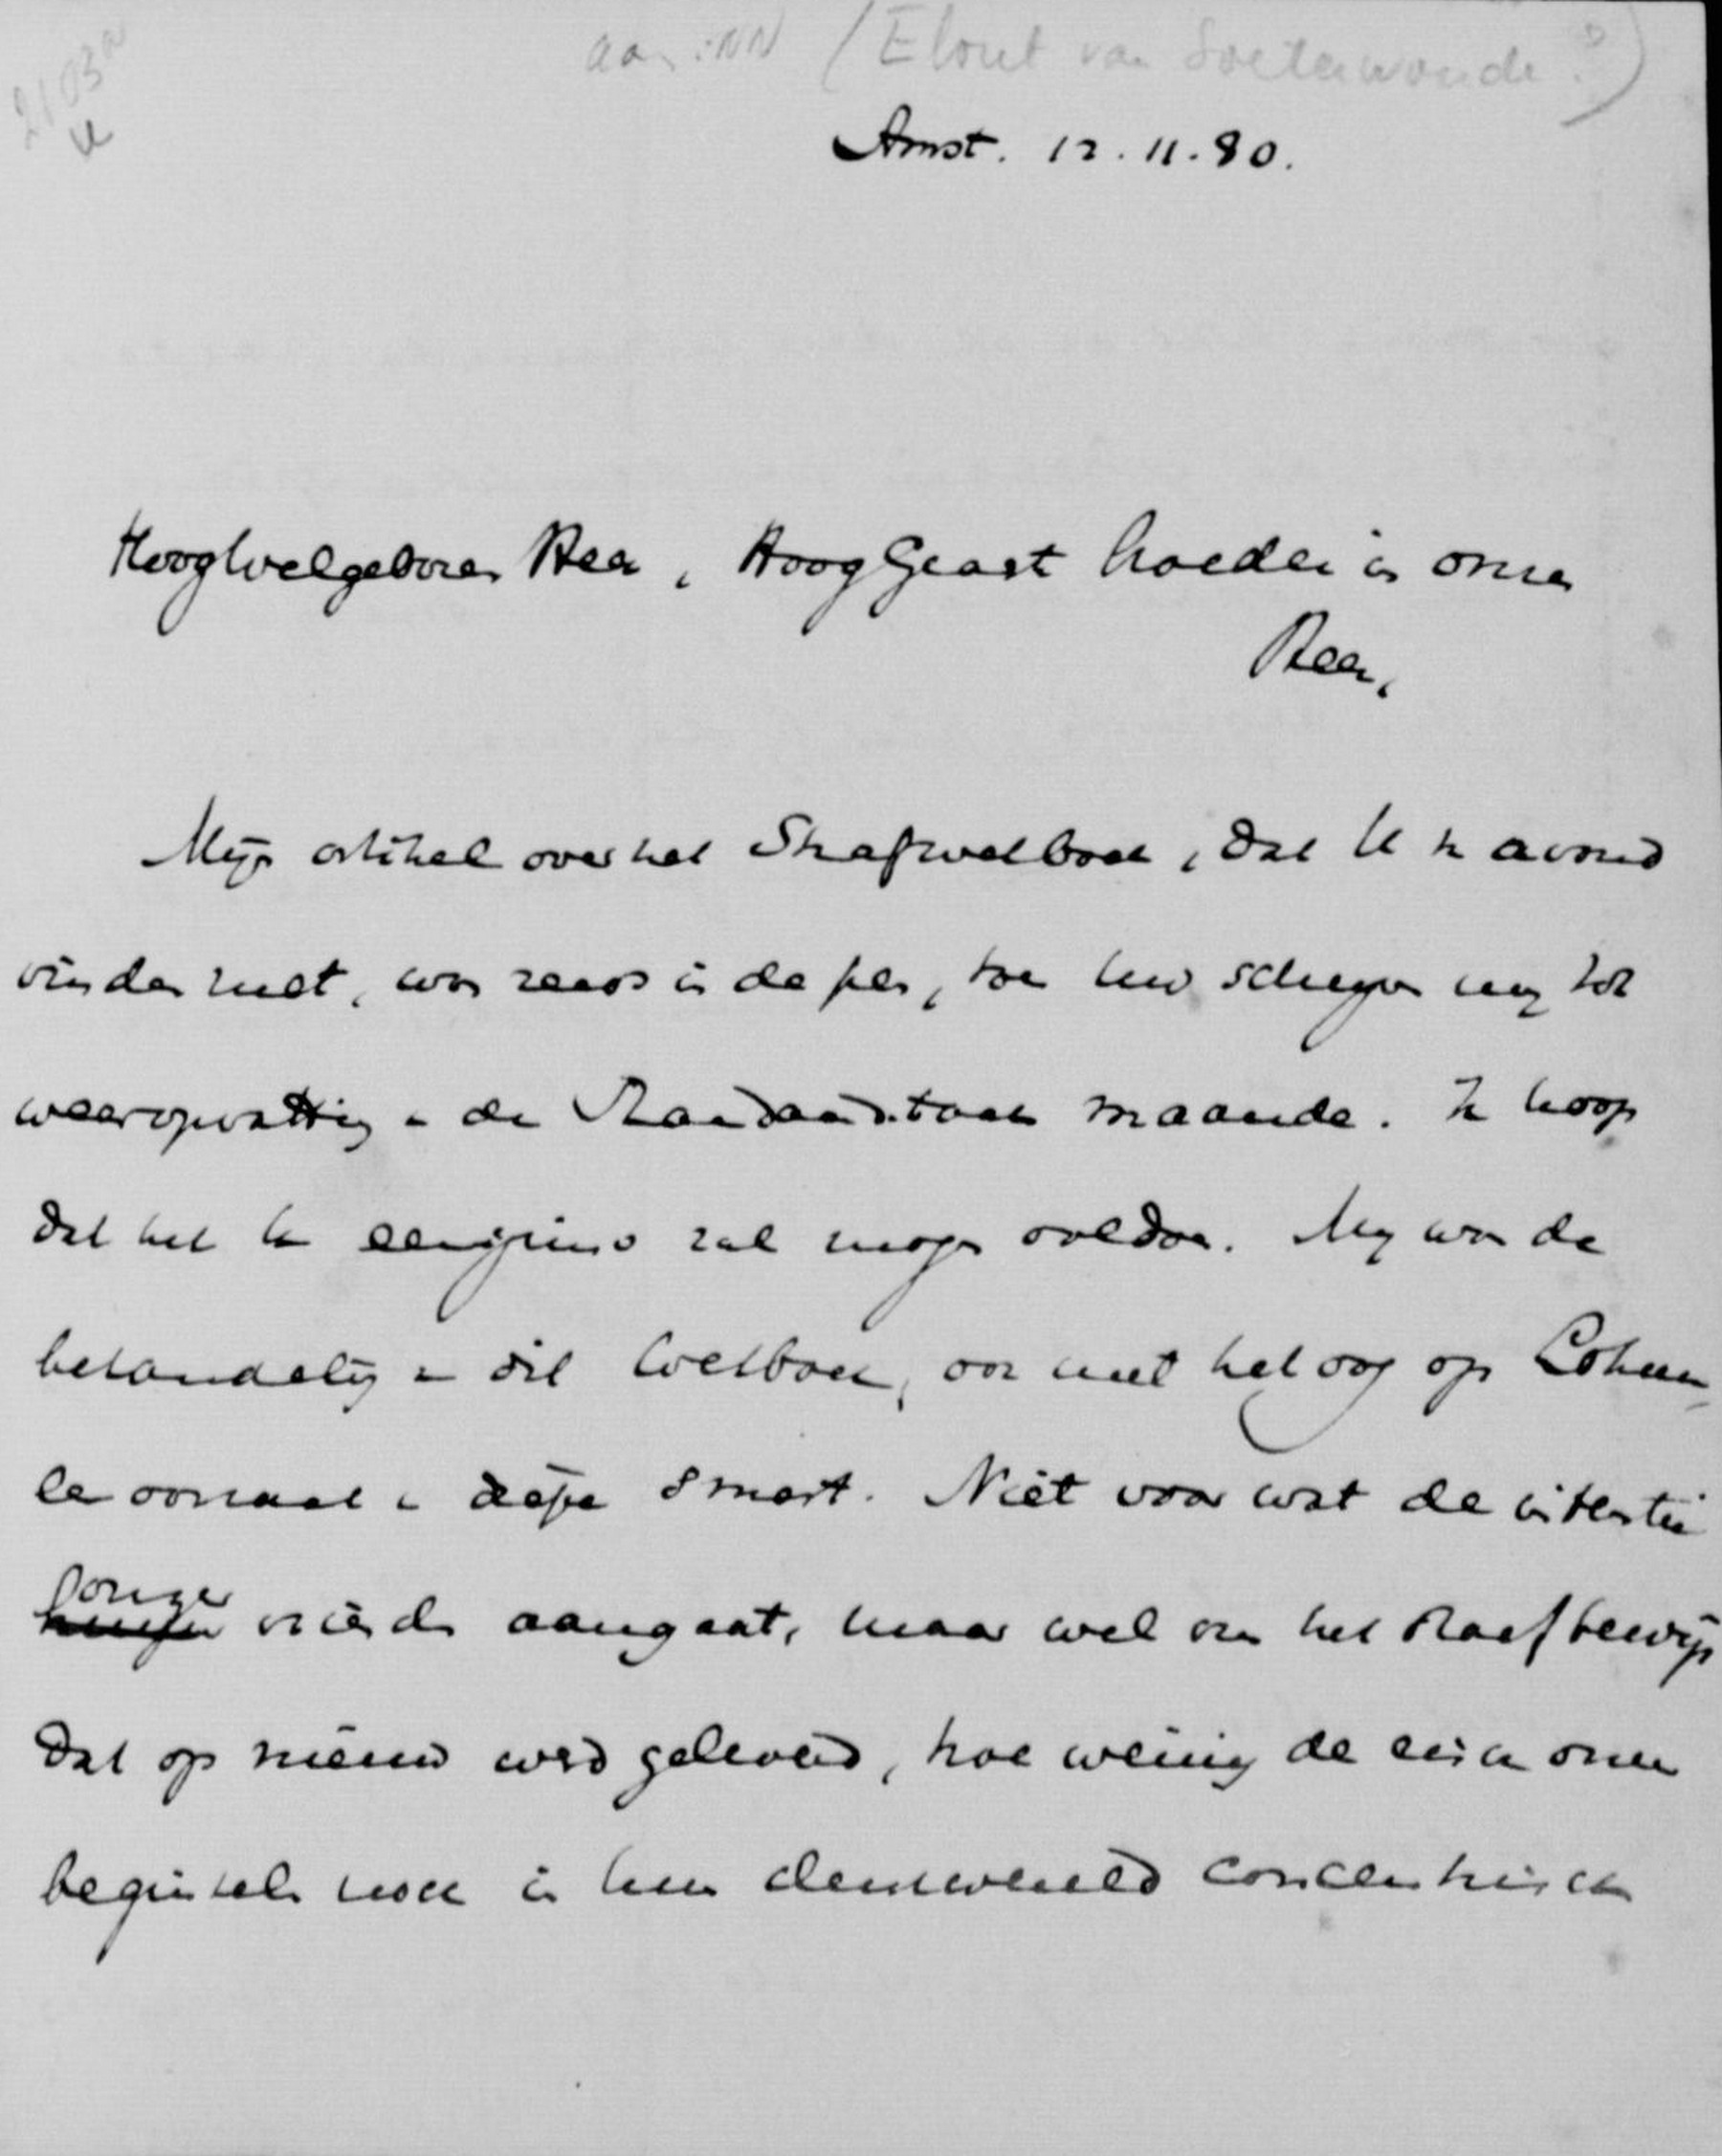 2103a
aan: NN (Elout van Soeterwoude?)
Amst. 12.11.80.
Hoogwelgeboren Heer, Hooggeacht broeder in onzen
Heer,
Mijn artikel over het Strafwetboek, dat U van avond
vinden zult, was reeds in de pers, toen Uw schrijven mij tot
weeropvatting van de Standaardtaak maande. Ik hoop
dat het U eenigzins zal mogen voldoen. Mij was de
behandeling van dit Wetboek, ook met het oog op Lohman
een oorzaak van diepe smart. Niet voor wat de intentie
onzer vrienden aangaat, maar wel om het staaf bewijs
dat op nieuw werd geleverd, hoe weinig de eisch onzer
beginselen nog in hun denkwereld concentrisch